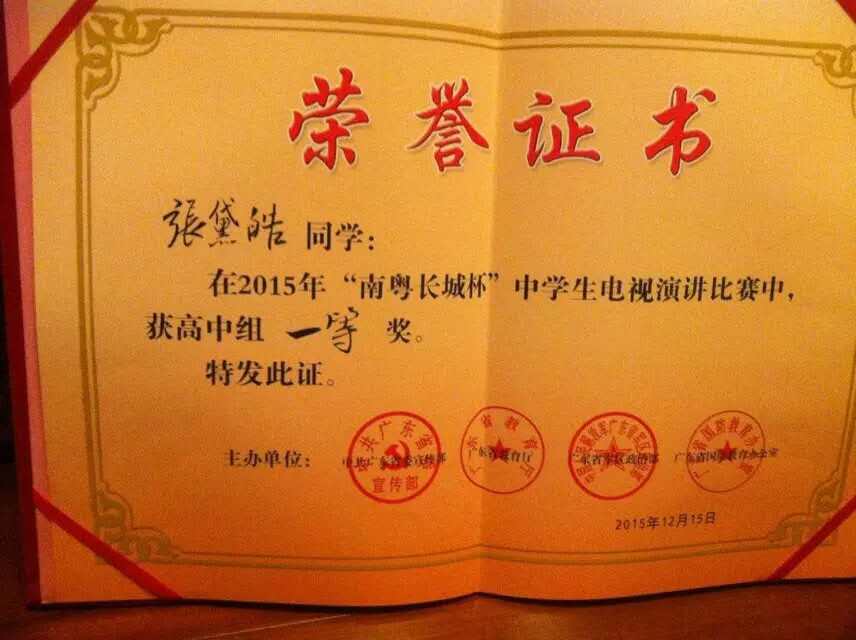 荣誉证书
張黛皓 同学：
在2015年“南粤长城杯”中学生电视演讲比赛中，
获高中组 一等 奖。
特发此证。
主办单位： 中共广东省委宣传部 广东省教育厅 广东省军区政治部 广东省国防教育办公室
2015年12月15日